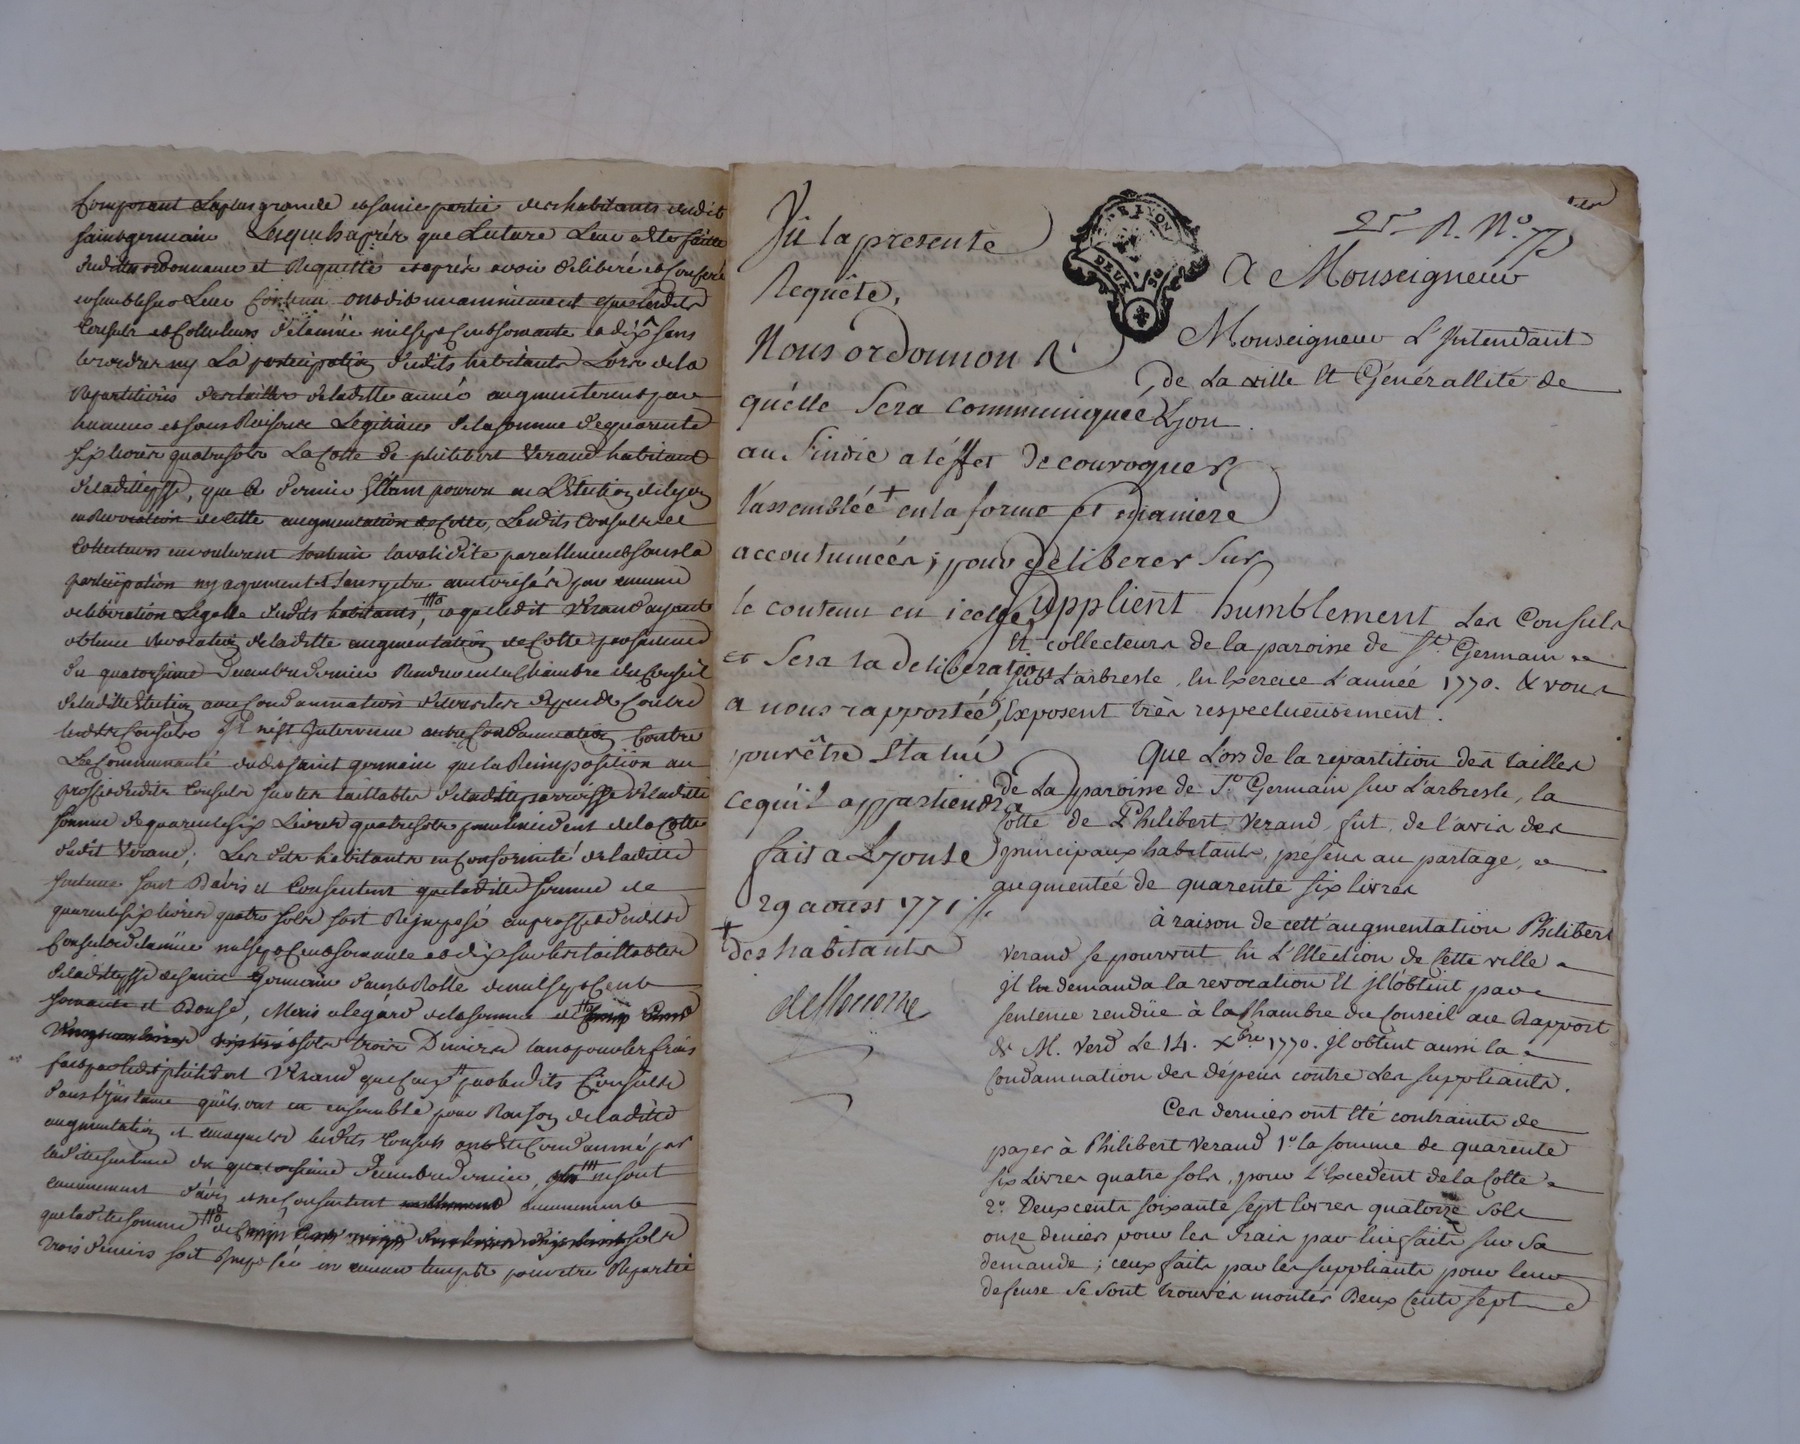 Composant la plus grande et sainie partie des habitants dudit
saint germain Lesquels après que Lecture Leur a été faitte
desdittes ordonnance et Requette et après avoir deliberé et Conferé
ensemble sur Leur Contenu ont dit unanimement que lesdits
Consuls et Collecteurs de lannée mil sept Cent soixante et dix sans
les ordres ny La participation desdits habitants Lors de la
Repartition des tailles de laditte année augmenterent par
humeur et sans Raison Legitime de la somme de quarente
six livres quatre sols La Cotte de philibert Verand habitant
de laditte ppsse, que Ce dernier s'étant pourvu en L'Election de Lyon
en Revocation de Cette augmentation de Cotte, Lesdits Consuls et
Collecteurs en voulurent soutenir la validité pareillement sans la
participation ny agrement et sans y etre authorisés par aucune
deliberation Legalle desdits habitants, que ledit Verand ayant
obtenu revocation de laditte augmentation de Cotte par sentence
du quatorzieme decembre dernier Rendue en la Chambre du Conseil
de laditte Election avec Condamnation de tous les depends Contre
lesdits Consuls Il n'est Intervenue autre Condamnation Contre
La Communauté dudit saint germain que la Reimposition au
proffit desdits Consuls sur les taillables de laditte parroisse de laditte
somme de quarente six Livres quatre sols pour l'excedent de la Cotte
dudit Verand. Les dits habitants en Conformité de laditte
sentence sont D'avis et Consentent que laditte somme de
quarente six livres quatre sols soit Reimposé au proffit desdits
Consuls de lannée mil sept Cent soixante et dix sur les taillables
de laditte ppsse de saint germain dans le Rolle de mil sept Cent
soixante et Douse, Mais a l'égard de la somme de
sols trois Deniers tant pour les frais
faits par ledit philibert Verand que Ceux par lesdits Consuls
dans l'instance qu'ils ont eu ensemble pour Raison de laditte
augmentation et auxquels lesdits Consuls ont été Condamnés par
laditte sentence du quatorzieme decembre dernier, ne sont
aucunement d'avis et ne Consentent aucunement
que laditte somme de sols
trois deniers soit Imposée en aucun temps pour etre Repartie
Vû la presente
Requête,
Nous ordonnons
qu'elle sera communiquée
au Sindic a l'éffet de convoquer
l'assemblée + en la forme et maniere
accoutumées ; pour deliberer sur
le contenu en icelle,
et sera la deliberation
a nous rapportée,
pour être statué
ce qu'il appartiendra
fait a Lyon le
29 aoust 1771 //.
+
des habitants
25 R. N.º 77
A Monseigneur
Monseigneur L'Intendant
de La ville Et Généralleté de
Lyon.
Supplient humblement Les Consuls
Et collecteurs de la paroisse de St. Germain
sur L'arbresle, En Exercice L'année 1770. & vous
Exposent très respectueusement.
Que Lors de la repartition des tailles
de La paroisse de St. Germain sur L'arbresle, la
Cotte de Philibert Verand, fut, de l'avis des
principaux habitants, présens au partage,
augmentée de quarente six livres
à raison de cett'augmentation Philibert
Verand se pourvut, En L'Election de Cette ville
Il En demanda la revocation Et Il l'obtint par
sentence rendüe à la Chambre du Conseil au Rapport
de M. Verd Le 14. Xbre 1770. Il obtint aussi la
Condamnation des dépens contre Les suppliants.
Ces derniers ont Eté contraints de
payer à Philibert Verand 1.º la somme de quarente
six Livres quatre sols, pour L'Excedent de la Cotte
2.º Deux cents soixante sept livres quatorze sols
onze deniers pour les frais par lui faits sur sa
demande ; ceux faits par les suppliants pour leur
defense se sont trouvés monter Deux Cents sept